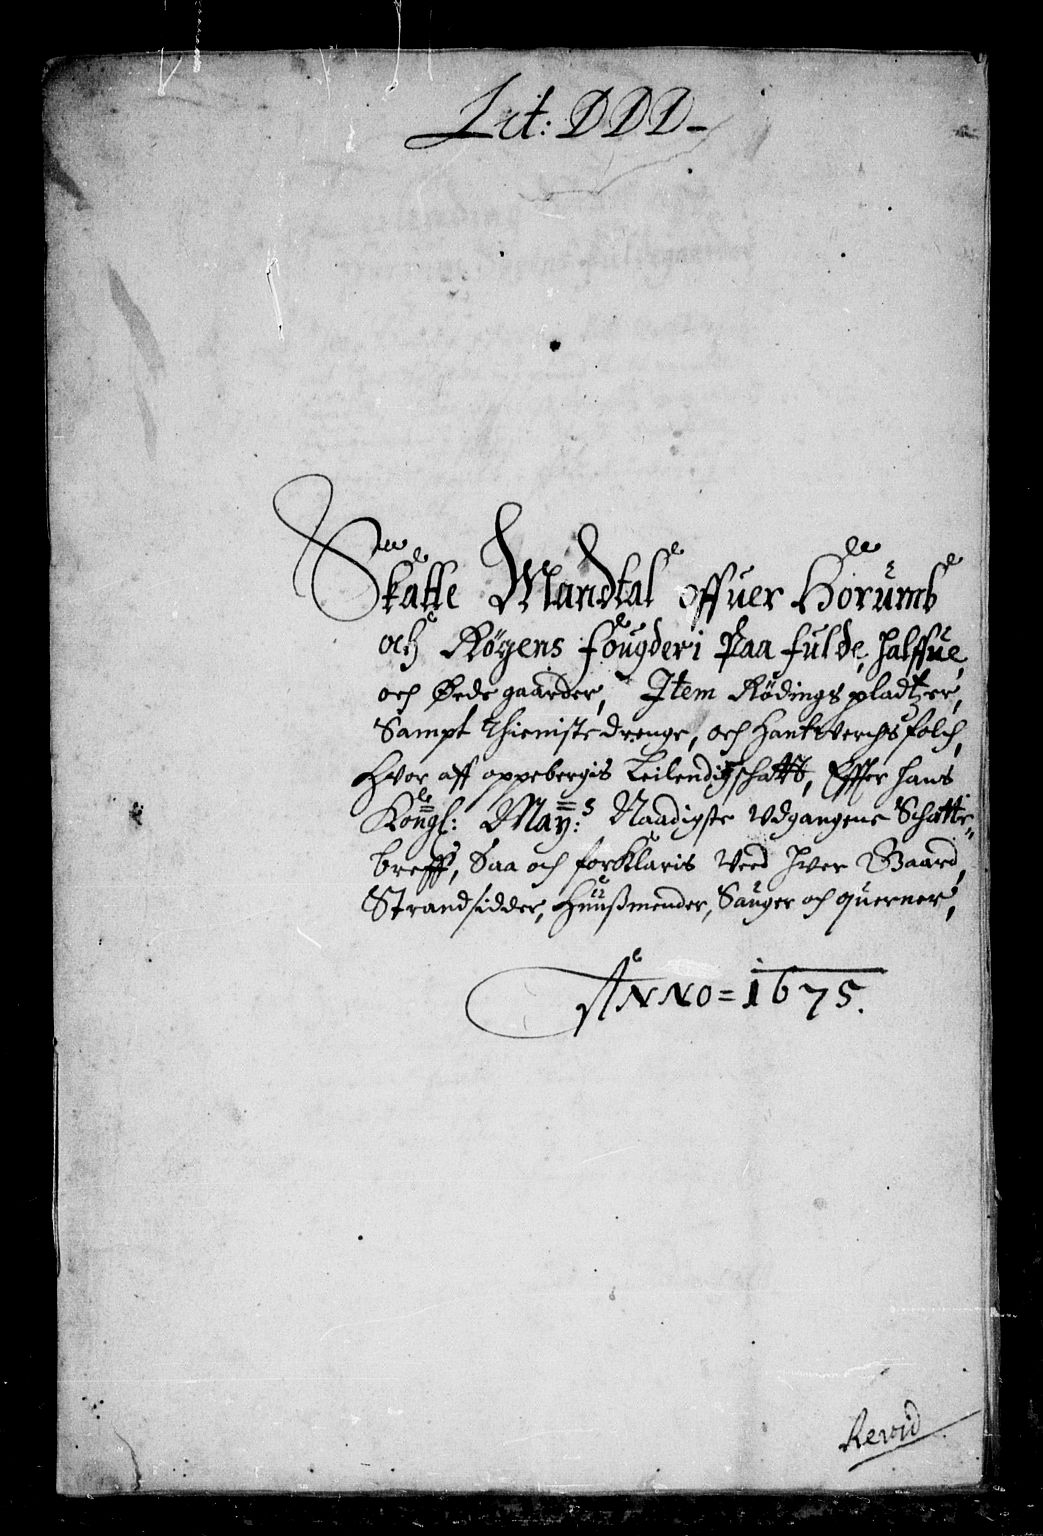 Lit: DDD-
Skatte Mandtal offuer Horumb
och Røgens fougderi Paa fulde, halffue,
och Øede gaarder, Item Rödings pladtzer,
Sampt thieniste drenge, och Hantverchs folch,
Hvor aff oppebergis Leilendigschatt, Effter hans
Kongl: May:s Naadigste vdgangene Schatte-
breff, Saa och forklaris Veed hver Gaard,
Strandsidder, Huußmender, Sauger och querner,
ANNO = 1675.
Revid